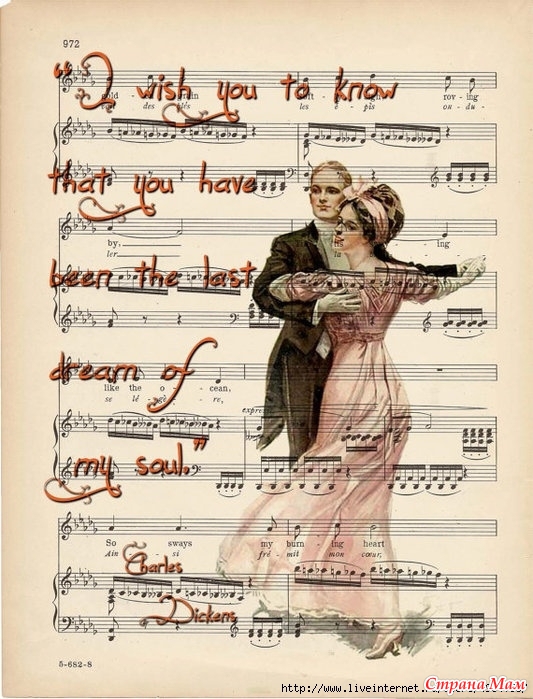 972
“I wish you to know
rov - ing
ou - du -
that you have
by,
ing
ler
la
been the last
dream of
like the o - cean,
se lé - gè - re,
my soul.”
So sways my burn - ing heart
Ain - si fré - mit mon cœur,
Charles
Dickens
5-682-8
http://www.liveinternet.ru/
Страна Мам